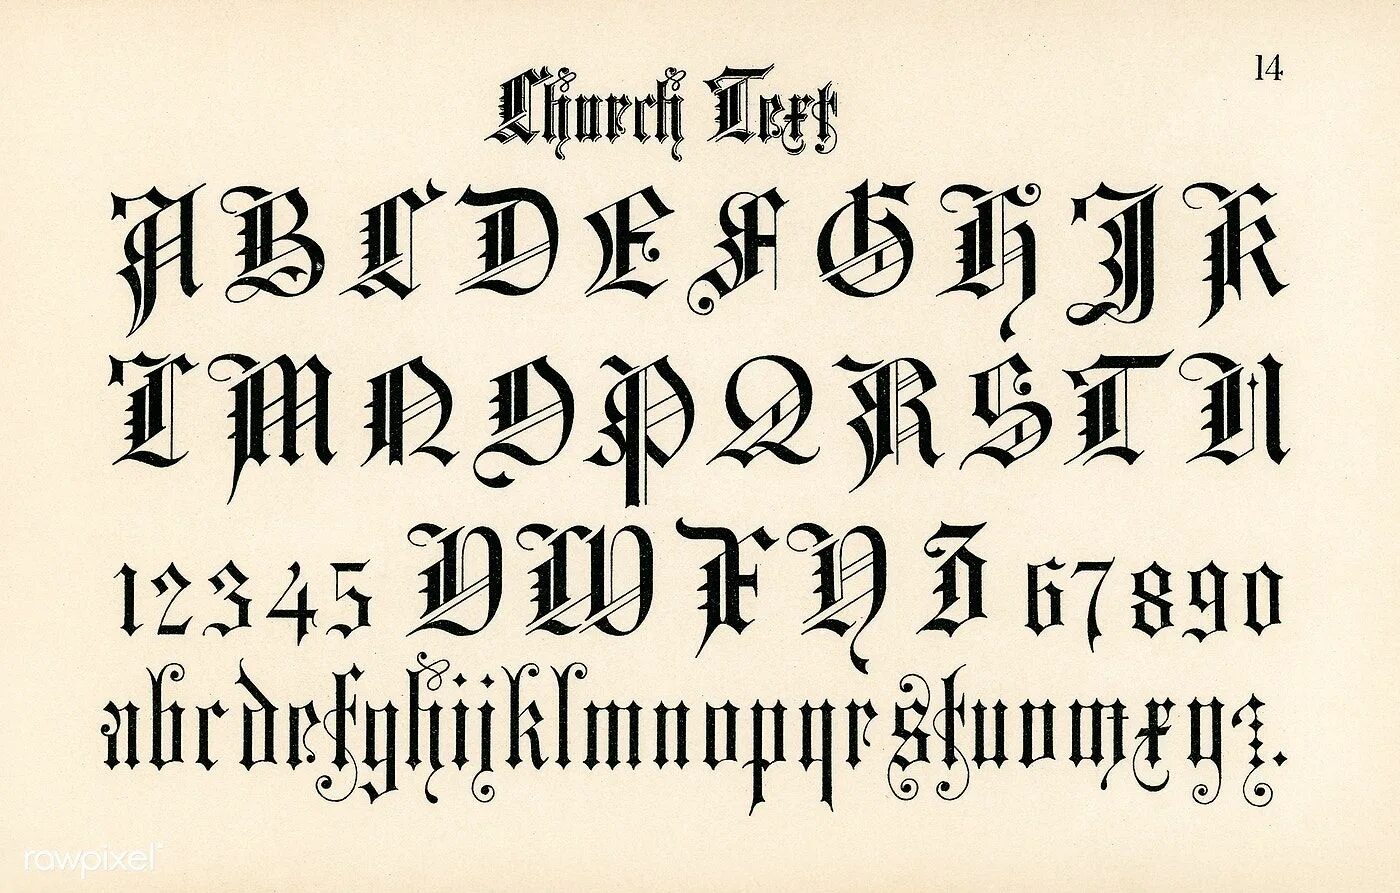 14
Church Text
A B C D E F G H J K
L M N O P Q R S T U
1 2 3 4 5 V W X Y Z 6 7 8 9 0
a b c d e f g h i j k l m n o p q r s t u v w x y z .
rawpixel